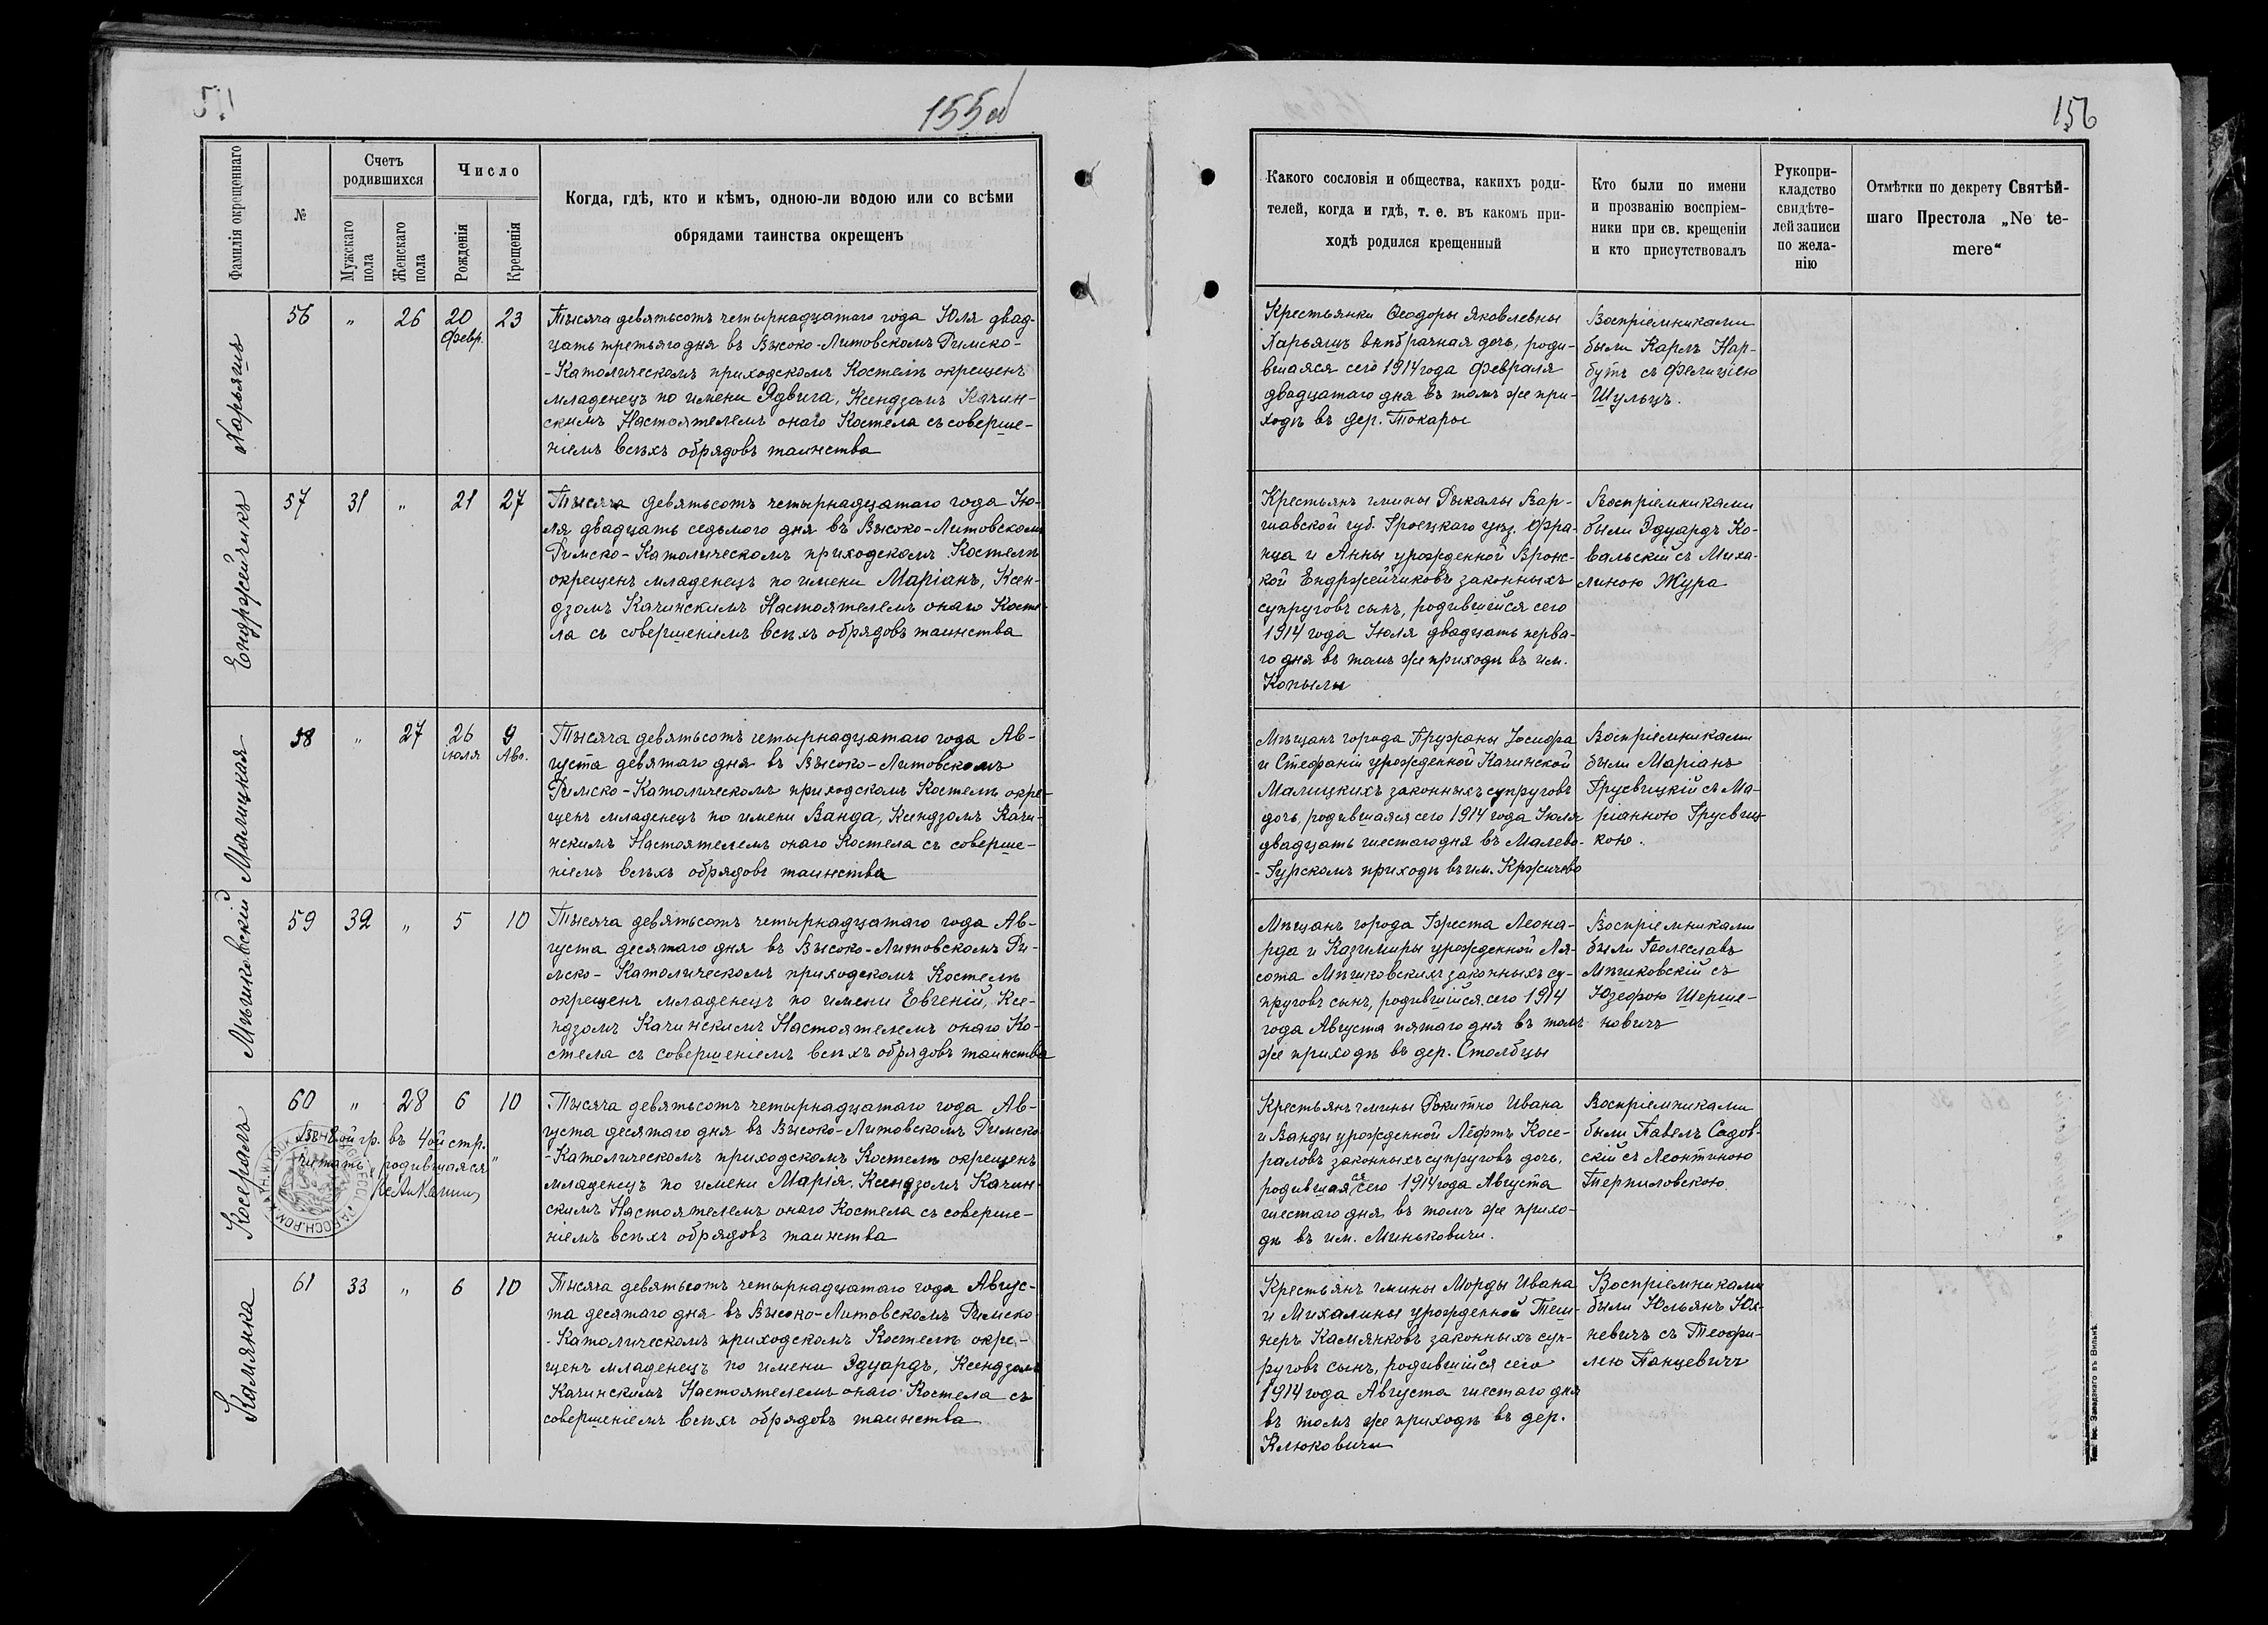 155 об
156
Фамилія окрещеннаго
№
Счетъ родившихся
Мужскаго пола
Женскаго пола
Число
Рожденія
Крещенія
Когда, гдѣ, кто и кѣмъ, одною-ли водою или со всѣми
обрядами таинства окрещенъ
Какого сословія и общества, какихъ роди-
телей, когда и гдѣ, т. е. въ какомъ при-
ходѣ родился крещенный
Кто были по имени
и прозванію воспріем-
ники при св. крещеніи
и кто присутствовалъ
Рукопри-
кладство
свидѣте-
лей записи
по жела-
нію
Отмѣтки по декрету Святѣй-
шаго Престола „Ne te-
mere“
Харьяшъ
56 " 26 20 Февр. 23
Тысяча девятьсотъ четырнадцатаго года Юля двад-
цать третьяго дня въ Высоко-Литовскомъ Римско-
-Католическомъ приходскомъ Костелѣ окрещенъ
младенецъ по имени Ядвига, Ксендзомъ Качин-
скимъ Настоятелемъ онаго Костела съ соверше-
ніемъ всѣхъ обрядовъ таинства
Крестьянки Ѳеодоры Яковлевны
Харьяшъ внѣбрачная дочь, роди-
вшаяся сего 1914 года Февраля
двадцатаго дня въ томъ же при-
ходѣ въ дер. Токары
Воспріемниками
были Карлъ Нар-
бутъ съ Фелиціею
Шульцъ.
Ендржейчикъ
57 31 " 21 27
Тысяча девятьсотъ четырнадцатаго года Ію-
ля двадцать седьмого дня въ Высоко-Литовскомъ
Римско-Католическомъ приходскомъ Костелѣ
окрещенъ младенецъ по имени Маріанъ, Ксен-
дзомъ Качинскимъ Настоятелемъ онаго Косте-
ла съ совершеніемъ всѣхъ обрядовъ таинства
Крестьянъ гмины Рыкалы Вар-
шавской губ. Гроецкаго уѣз. Фра-
нца и Анны урожденной Вронс-
кой Ендржейчиковъ законныхъ
супруговъ сынъ, родившійся сего
1914 года Іюля двадцать перва-
го дня въ томъ же приходѣ въ им.
Копылы
Воспріемниками
были Эдуардъ Ко-
вальскій съ Миха-
линою Жура
Малицкая
58 " 27 26 іюля 9 Авг.
Тысяча девятьсотъ четырнадцатаго года Ав-
густа девятаго дня въ Высоко-Литовскомъ
Римско-Католическомъ приходскомъ Костелѣ окре-
щенъ младенецъ по имени Ванда, Ксендзомъ Качи-
нскимъ Настоятелемъ онаго Костела съ соверше-
ніемъ всѣхъ обрядовъ таинства
Мѣщанъ города Пружаны Іосифа
и Стефаніи урожденной Качинской
Малицкихъ законныхъ супруговъ
дочь, родившаяся сего 1914 года Іюля
двадцать шестаго дня въ Малево-
-Гурскомъ приходѣ въ им. Кржичево
Воспріемниками
были Маріанъ
Грусвицкій съ Ма-
ріанною Грусвиц-
кою.
Мѣшковскій
59 32 " 5 10
Тысяча девятьсотъ четырнадцатаго года Ав-
густа десятаго дня въ Высоко-Литовскомъ Ри-
мско-Католическомъ приходскомъ Костелѣ
окрещенъ младенецъ по имени Евгеній, Ксе-
ндзомъ Качинскимъ Настоятелемъ онаго Ко-
стела съ совершеніемъ всѣхъ обрядовъ таинства
Мѣщанъ города Бреста Леона-
рда и Казимиры урожденной Ля-
сота Мѣшковскихъ законныхъ су-
пруговъ сынъ, родившійся сего 1914
года Августа пятаго дня въ томъ
же приходѣ въ дер. Столбцы
Воспріемниками
были Болеславъ
Мѣшковскій съ
Юзефою Шерше-
новичъ
Косераль
60 " 28 6 10
въ 4ой стр.
читать „родившаяся“
Тысяча девятьсотъ четырнадцатаго года Ав-
густа десятаго дня въ Высоко-Литовскомъ Римско-
-Католическомъ приходскомъ Костелѣ окрещенъ
младенецъ по имени Марія, Ксендзомъ Качин-
скимъ Настоятелемъ онаго Костела съ соверше-
ніемъ всѣхъ обрядовъ таинства
Крестьянъ гмины Рокитно Ивана
и Ванды урожденной Лефтъ Косе-
раловъ законныхъ супруговъ дочь,
родившаяся сего 1914 года Августа
шестаго дня въ томъ же прихо-
дѣ въ им. Миньковичи.
Воспріемниками
были Павелъ Садов-
скій съ Леонтиною
Терпиловскою
Камянка
61 33 " 6 10
Тысяча девятьсотъ четырнадцатаго года Авгус-
та десятаго дня въ Высоко-Литовскомъ Римско-
-Католическомъ приходскомъ Костелѣ окре-
щенъ младенецъ по имени Эдуардъ, Ксендзомъ
Качинскимъ Настоятелемъ онаго Костела съ
совершеніемъ всѣхъ обрядовъ таинства
Крестьянъ гмины Морды Ивана
и Михалины урожденной Теш-
неръ Камянковъ законныхъ суп-
руговъ сынъ, родившійся сего
1914 года Августа шестаго дня
въ томъ же приходѣ въ дер.
Клюковичи
Воспріемниками
были Юльянъ Юх-
невичъ съ Теофи-
лею Панцевичъ
Тип. Іос. Завадзкаго въ Вильнѣ.